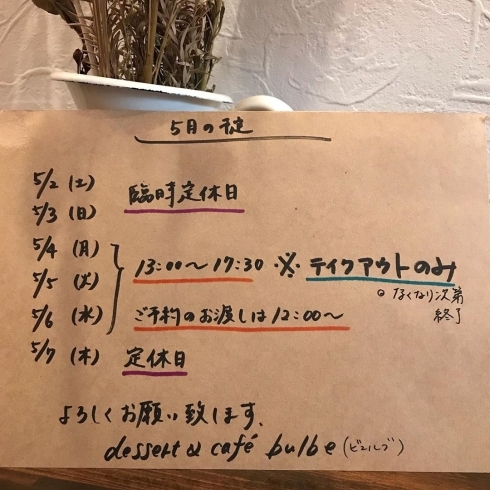 5月の掟
5/2 (土) 臨時定休日
5/3 (日)
5/4 (月)
5/5 (火) 13:00～17:30 ※ テイクアウトのみ
なくなり次第
終了
5/6 (水) ご予約のお渡しは12:00～
5/7 (木) 定休日
よろしくお願い致します.
dessert & café bulbe (ビュルブ)